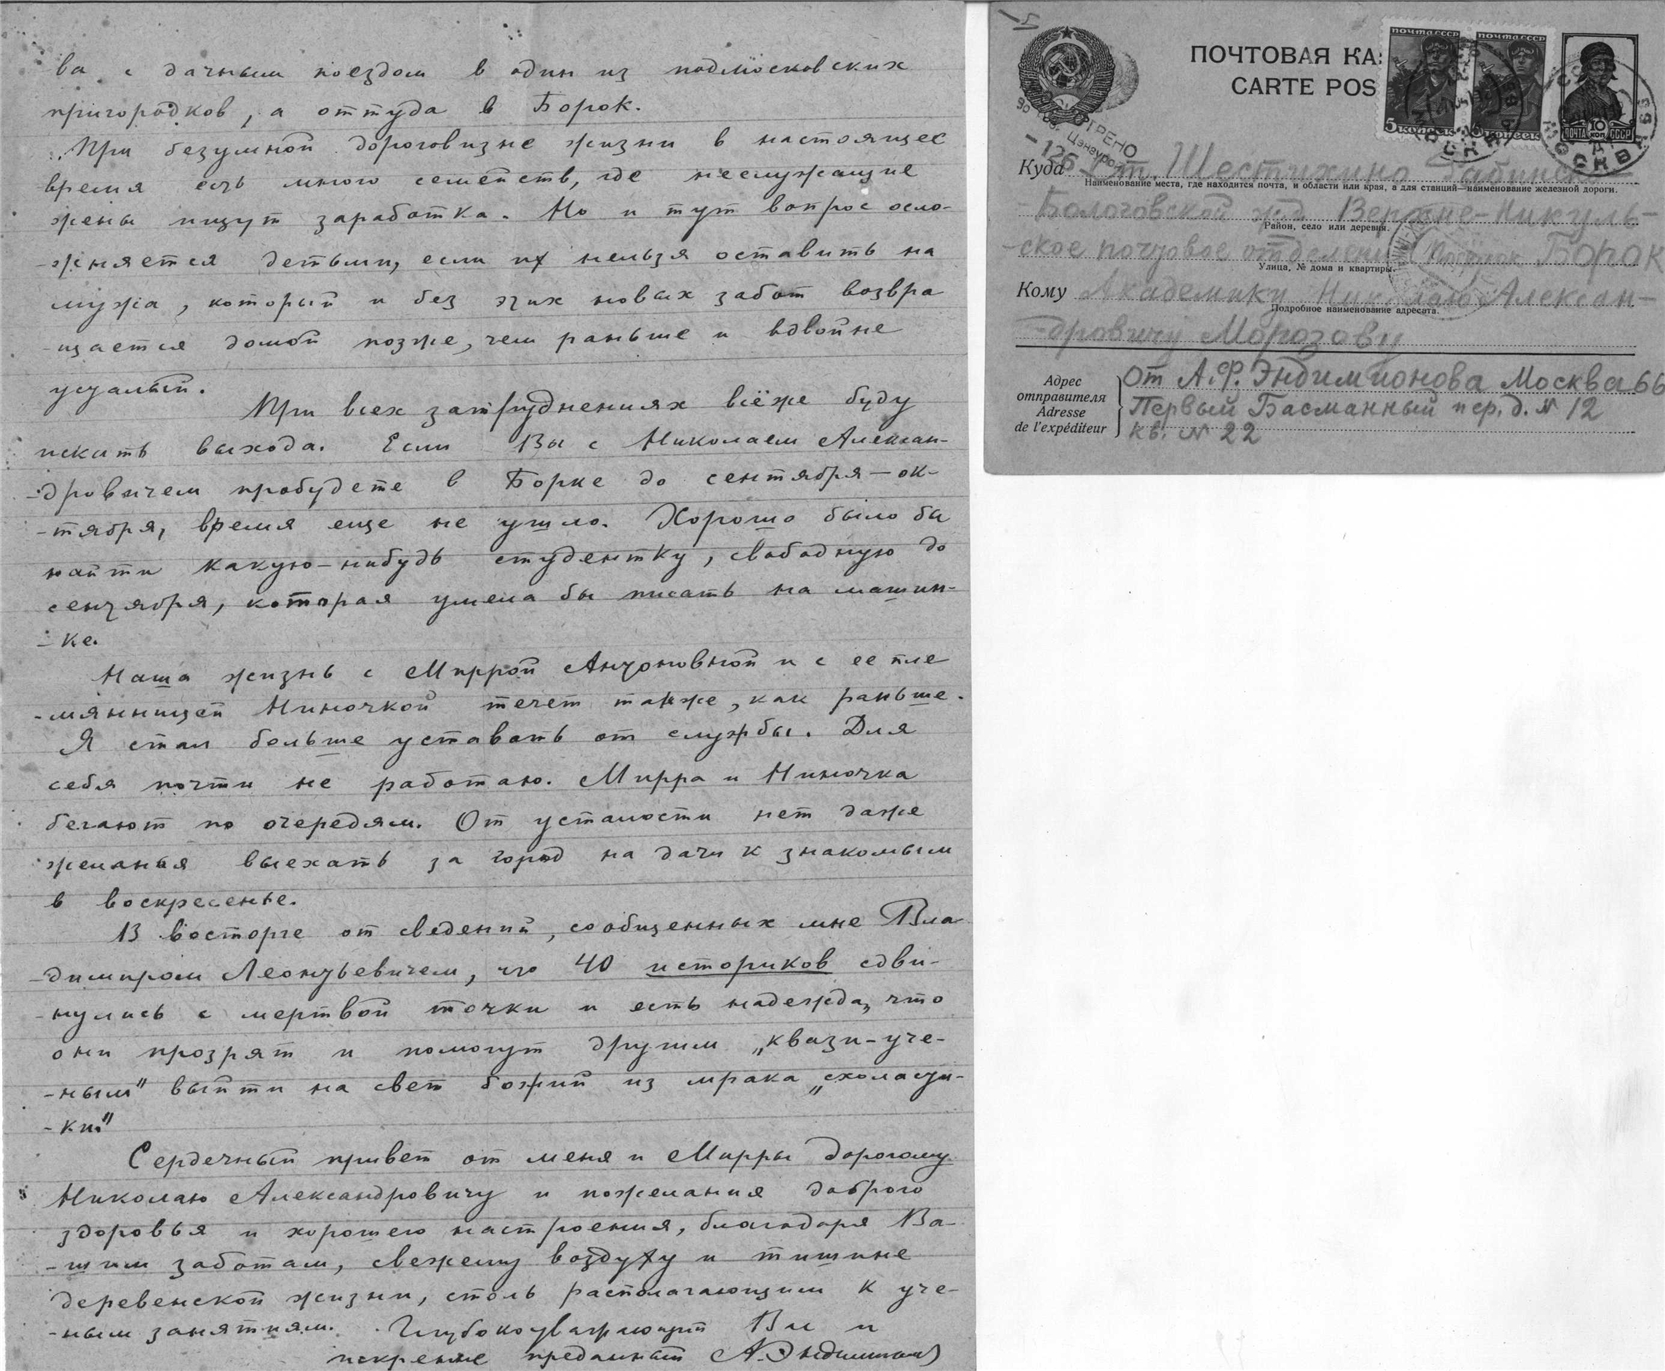 ва с дачным поездом в один из подмосковских
пригородков, а оттуда в Борок.
При безумной дороговизне жизни в настоящее
время есть много семейств, где неслужащие
жены ищут заработка. Но и тут вопрос осло-
-жняется детьми, если их нельзя оставить на
мужа, который и без этих новых забот возвра
-щается домой позже, чем раньше и вдвойне
усталый.
При всех затруднениях всёже буду
искать выхода. Если Вы с Николаем Алексан-
-дровичем пробудете в Борке до сентября — ок-
-тября, время еще не ушло. Хорошо было бы
найти какую-нибудь студентку, свободную до
сентября, которая умела бы писать на машин-
-ке.
Наша жизнь с Миррой Антоновной и с ее пле
-мянницей Ниночкой течет также, как раньше.
Я стал больше уставать от службы. Для
себя почти не работаю. Мирра и Ниночка
бегают по очередям. От усталости нет даже
желанья выехать за город на дачи к знакомым
в воскресенье.
В восторге от сведений, сообщенных мне Вла
-димиром Леонтьевичем, что 40 историков сдви-
-нулись с мертвой точки и есть надежда, что
они прозрят и помогут другим „квази-уче-
-ным" выйти на свет божий из мрака „схоласти-
-ки"
Сердечный привет от меня и Мирры дорогому
Николаю Александровичу и пожелания доброго
здоровья и хорошего настроения, благодаря Ва-
-шим заботам, свежему воздуху и тишине
деревенской жизни, столь располагающим к уче-
-ным занятиям. Глубокоуважающий Вас и
искренне преданный А. Эндимионов
ПОЧТОВАЯ КА
CARTE POS
ПОЧТА СССР
5 КОПЕЕК
ПОЧТА СССР
КОПЕЕК
ПОЧТА 10 КОП СССР
МОСКВА
МОСКВА
-126
Куда Ст. Шестихино
Наименование места, где находится почта, и области или края, а для станций—наименование железной дороги.
Бологовской жд Верхне-Никуль-
Район, село или деревня.
-ское почтовое отделени БОРОК
Улица, № дома и квартиры.
Кому Академику Николаю Алексан-
Подробное наименование адресата.
-дровичу Морозову
Адрес отправителя
Adresse de l'expéditeur
От А.Ф. Эндимионова Москва 66
Первый Басманный пер. д. № 12
кв. № 22